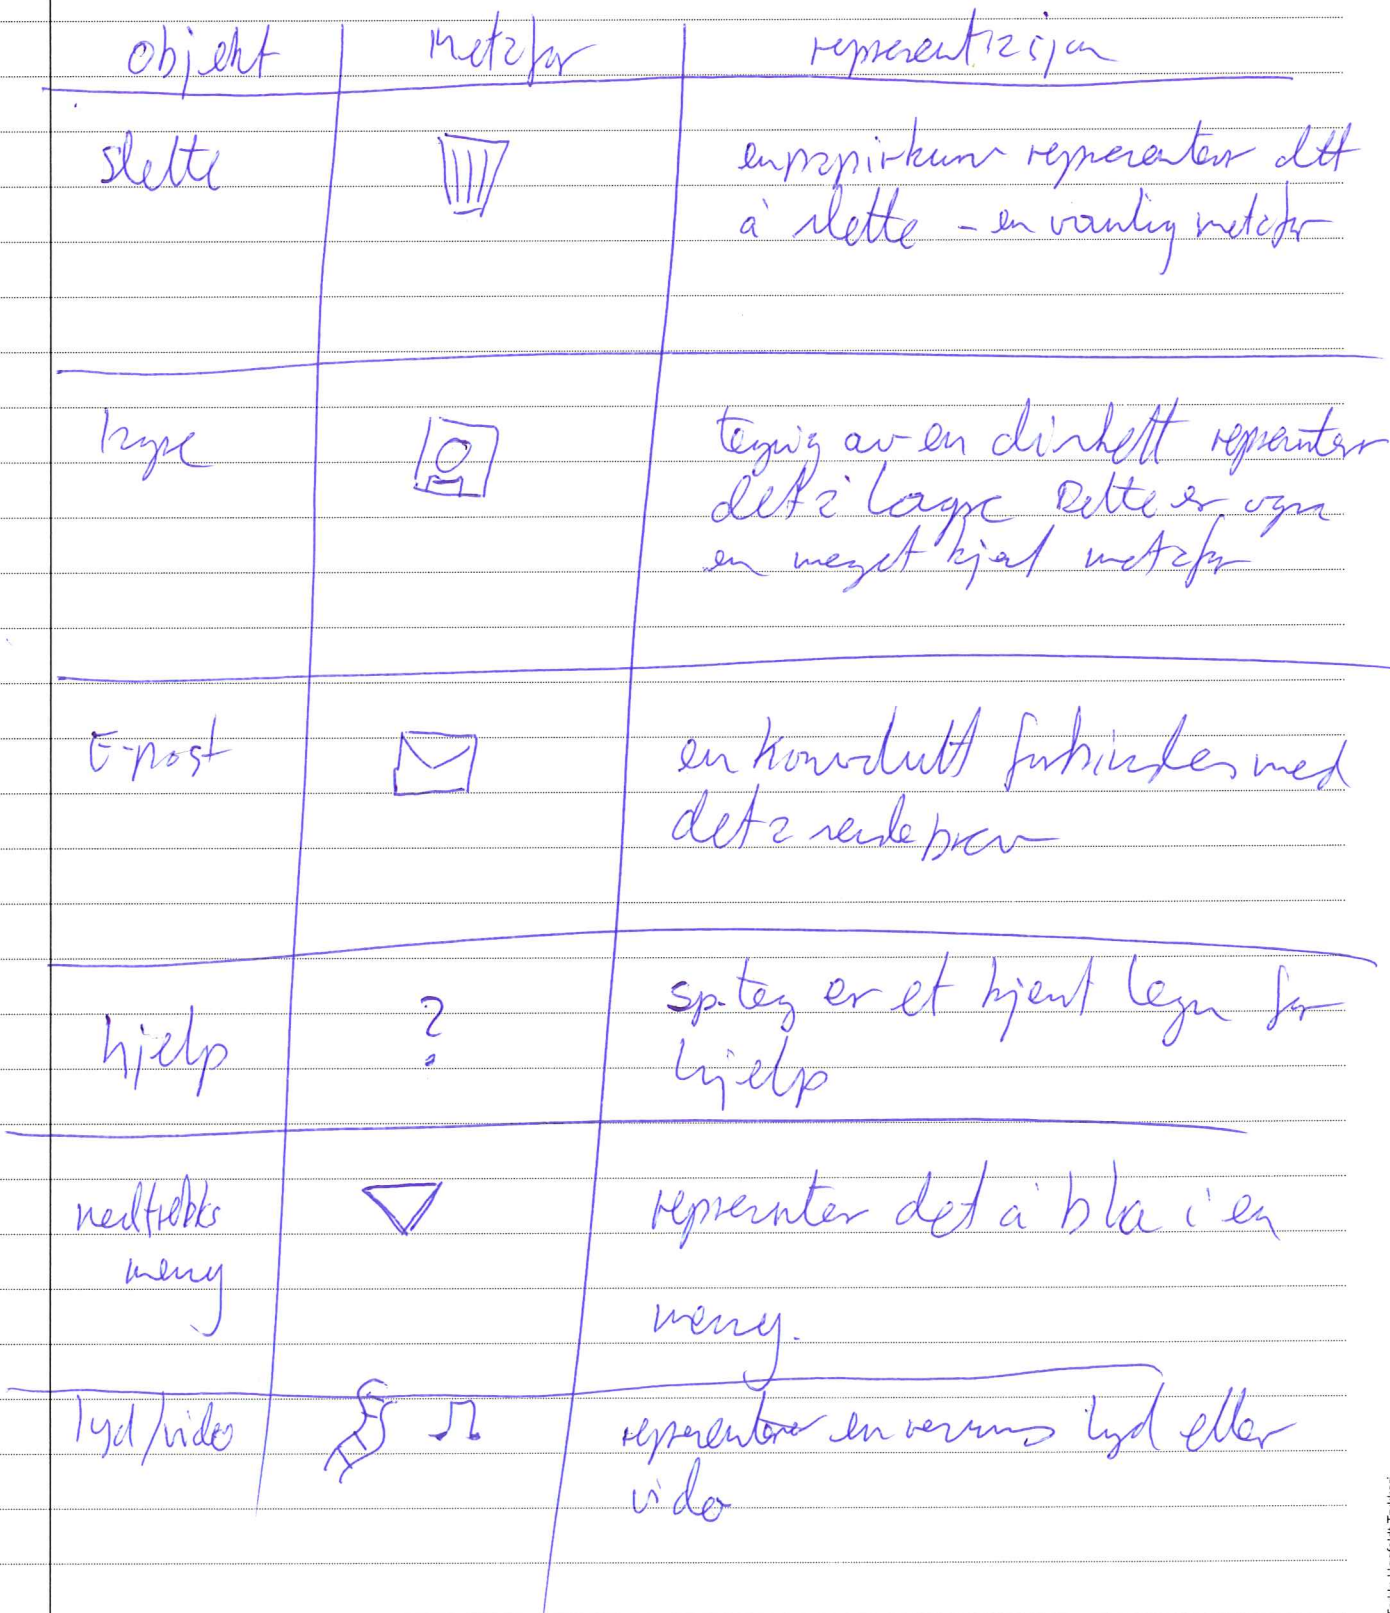 objekt metafor representasjon
slette en papirkurv representerer det
å slette – en vanlig metafor
lagre tegning av en diskett representerer
det å lagre Dette er også
en meget kjent metafor
E-post en konvolutt forbindes med
det å sende brev
hjelp ? sp.tegn er et kjent tegn for
hjelp
nedtrekks representerer det å bla i en
meny
meny.
lyd/video representerer en lyd eller
video